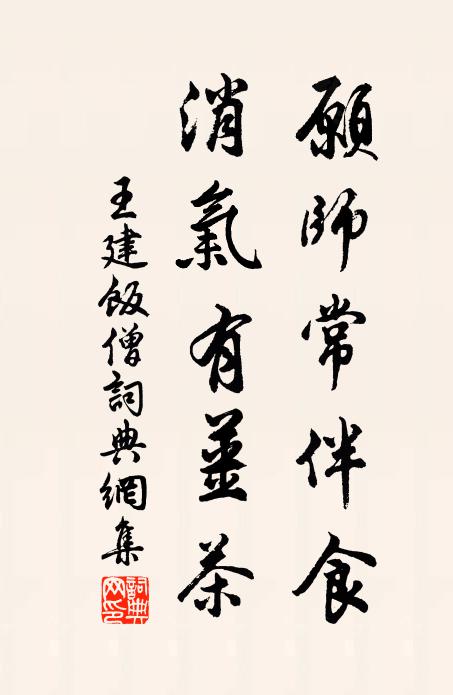 願師常伴食
消氣有薑茶
王建飯僧詞典網集
詞典
网印